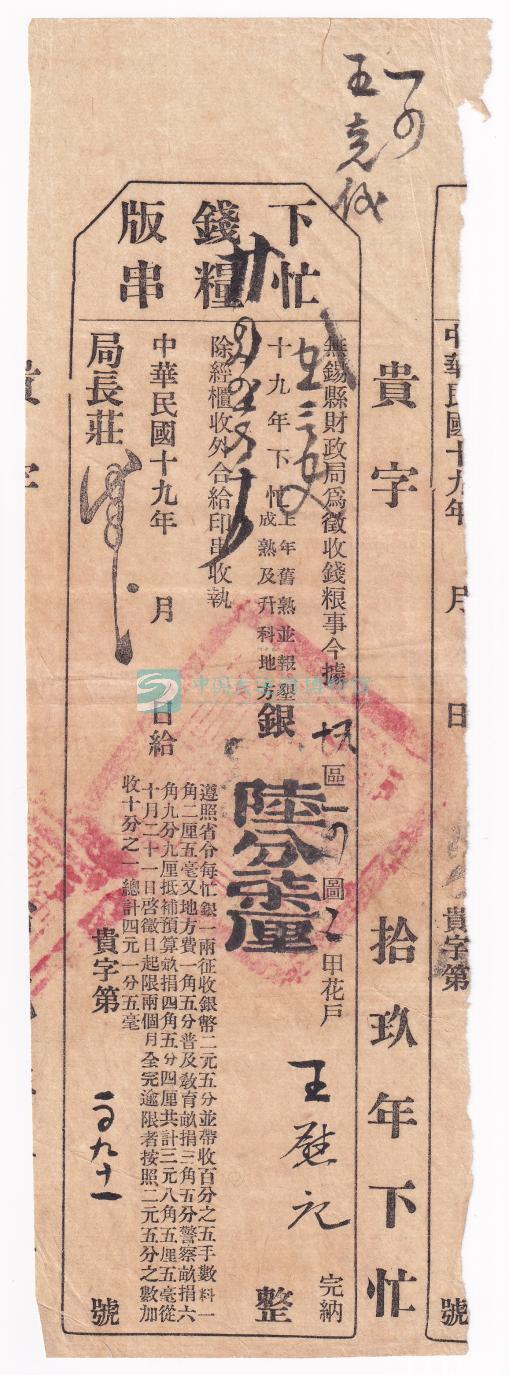 王堯俊
下忙
錢糧
版串
無錫縣財政局爲徵收錢粮事今據
區
圖
甲花戶
王
記
完納
十九年下忙
上年舊熟並報墾
成熟及升科地方
銀
陸分柒厘
整
除經櫃收外合給印串收執
遵照省令每忙銀一兩征收銀幣二元五分並帶收百分之五手數料一
角二厘五毫又地方費一角五分普及敎育畝捐三角五分警察畝捐六
角九分九厘抵補預算畝捐四角五分四厘共計三元八角五厘五毫從
十月二十一日啓徵日起限兩個月全完逾限者按照二元五分之數加
收十分之一總計四元一分五毫
中華民國十九年
月
日給
局長莊
貴字第
號
貴字
拾玖年下忙
中華民國十九年
月
日
貴字第
號
貴字